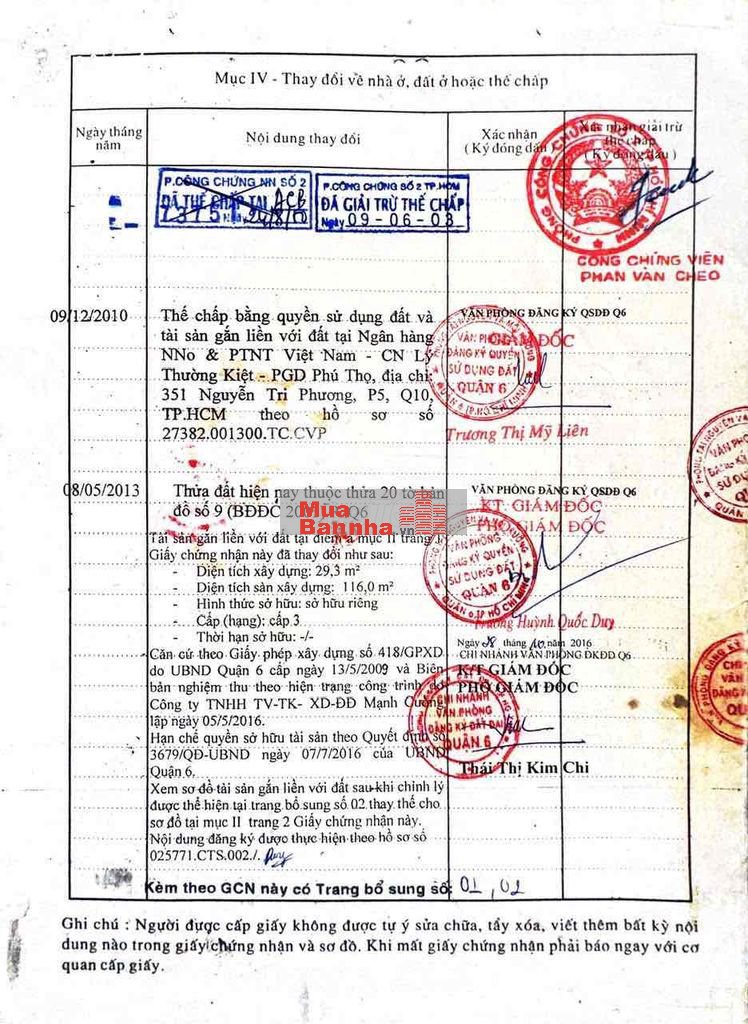 Mục IV - Thay đổi về nhà ở, đất ở hoặc thế chấp
Ngày tháng năm
Nội dung thay đổi
Xác nhận (Ký đóng dấu)
Xác nhận giải trừ thế chấp (Ký đóng dấu)
P.CÔNG CHỨNG NN SỐ 2
ĐÃ THẾ CHẤP TẠI ACB
P.CÔNG CHỨNG SỐ 2 TP.HCM
ĐÃ GIẢI TRỪ THẾ CHẤP
Ngày 09-06-03
CÔNG CHỨNG VIÊN
PHAN VĂN CHEO
09/12/2010
Thế chấp bằng quyền sử dụng đất và
tài sản gắn liền với đất tại Ngân hàng
NNo & PTNT Việt Nam - CN Lý
Thường Kiệt - PGD Phú Thọ, địa chỉ:
351 Nguyễn Tri Phương, P5, Q10,
TP.HCM theo hồ sơ số
27382.001300.TC.CVP
VĂN PHÒNG ĐĂNG KÝ QSDĐ Q6
GIÁM ĐỐC
VĂN PHÒNG
ĐĂNG KÝ QUYỀN
SỬ DỤNG ĐẤT
QUẬN 6
Trương Thị Mỹ Liên
08/05/2013
Thửa đất hiện nay thuộc thửa 20 tờ bản
đồ số 9 (BĐĐC Q6
MuaBannha.vn
Tài sản gắn liền với đất tại điểm a mục II trang
Giấy chứng nhận này đã thay đổi như sau:
- Diện tích xây dựng: 29,3 m²
- Diện tích sàn xây dựng: 116,0 m²
- Hình thức sở hữu: sở hữu riêng
- Cấp (hạng): cấp 3
- Thời hạn sở hữu: -/-
Căn cứ theo Giấy phép xây dựng số 418/GPXD
do UBND Quận 6 cấp ngày 13/5/2009 và Biên
bản nghiệm thu theo hiện trạng công trình do
Công ty TNHH TV-TK- XD-ĐĐ Mạnh Cường
lập ngày 05/5/2016.
Hạn chế quyền sở hữu tài sản theo Quyết định số
3679/QĐ-UBND ngày 07/7/2016 của UBND
Quận 6.
Xem sơ đồ tài sản gắn liền với đất sau khi chỉnh lý
được thể hiện tại trang bổ sung số 02 thay thế cho
sơ đồ tại mục II trang 2 Giấy chứng nhận này.
Nội dung đăng ký được thực hiện theo hồ sơ số
025771.CTS.002./.
VĂN PHÒNG ĐĂNG KÝ QSDĐ Q6
KT. GIÁM ĐỐC
PHÓ GIÁM ĐỐC
VĂN PHÒNG
ĐĂNG KÝ QUYỀN
SỬ DỤNG ĐẤT
QUẬN 6
Trương Huỳnh Quốc Duy
Ngày 28 tháng 10 năm 2016
CHI NHÁNH VĂN PHÒNG ĐKĐĐ Q6
K/T GIÁM ĐỐC
PHÓ GIÁM ĐỐC
CHI NHÁNH
VĂN PHÒNG
ĐĂNG KÝ ĐẤT ĐAI
QUẬN 6
Thái Thị Kim Chi
Kèm theo GCN này có Trang bổ sung số: 01, 02
Ghi chú : Người được cấp giấy không được tự ý sửa chữa, tẩy xóa, viết thêm bất kỳ nội
dung nào trong giấy chứng nhận và sơ đồ. Khi mất giấy chứng nhận phải báo ngay với cơ
quan cấp giấy.